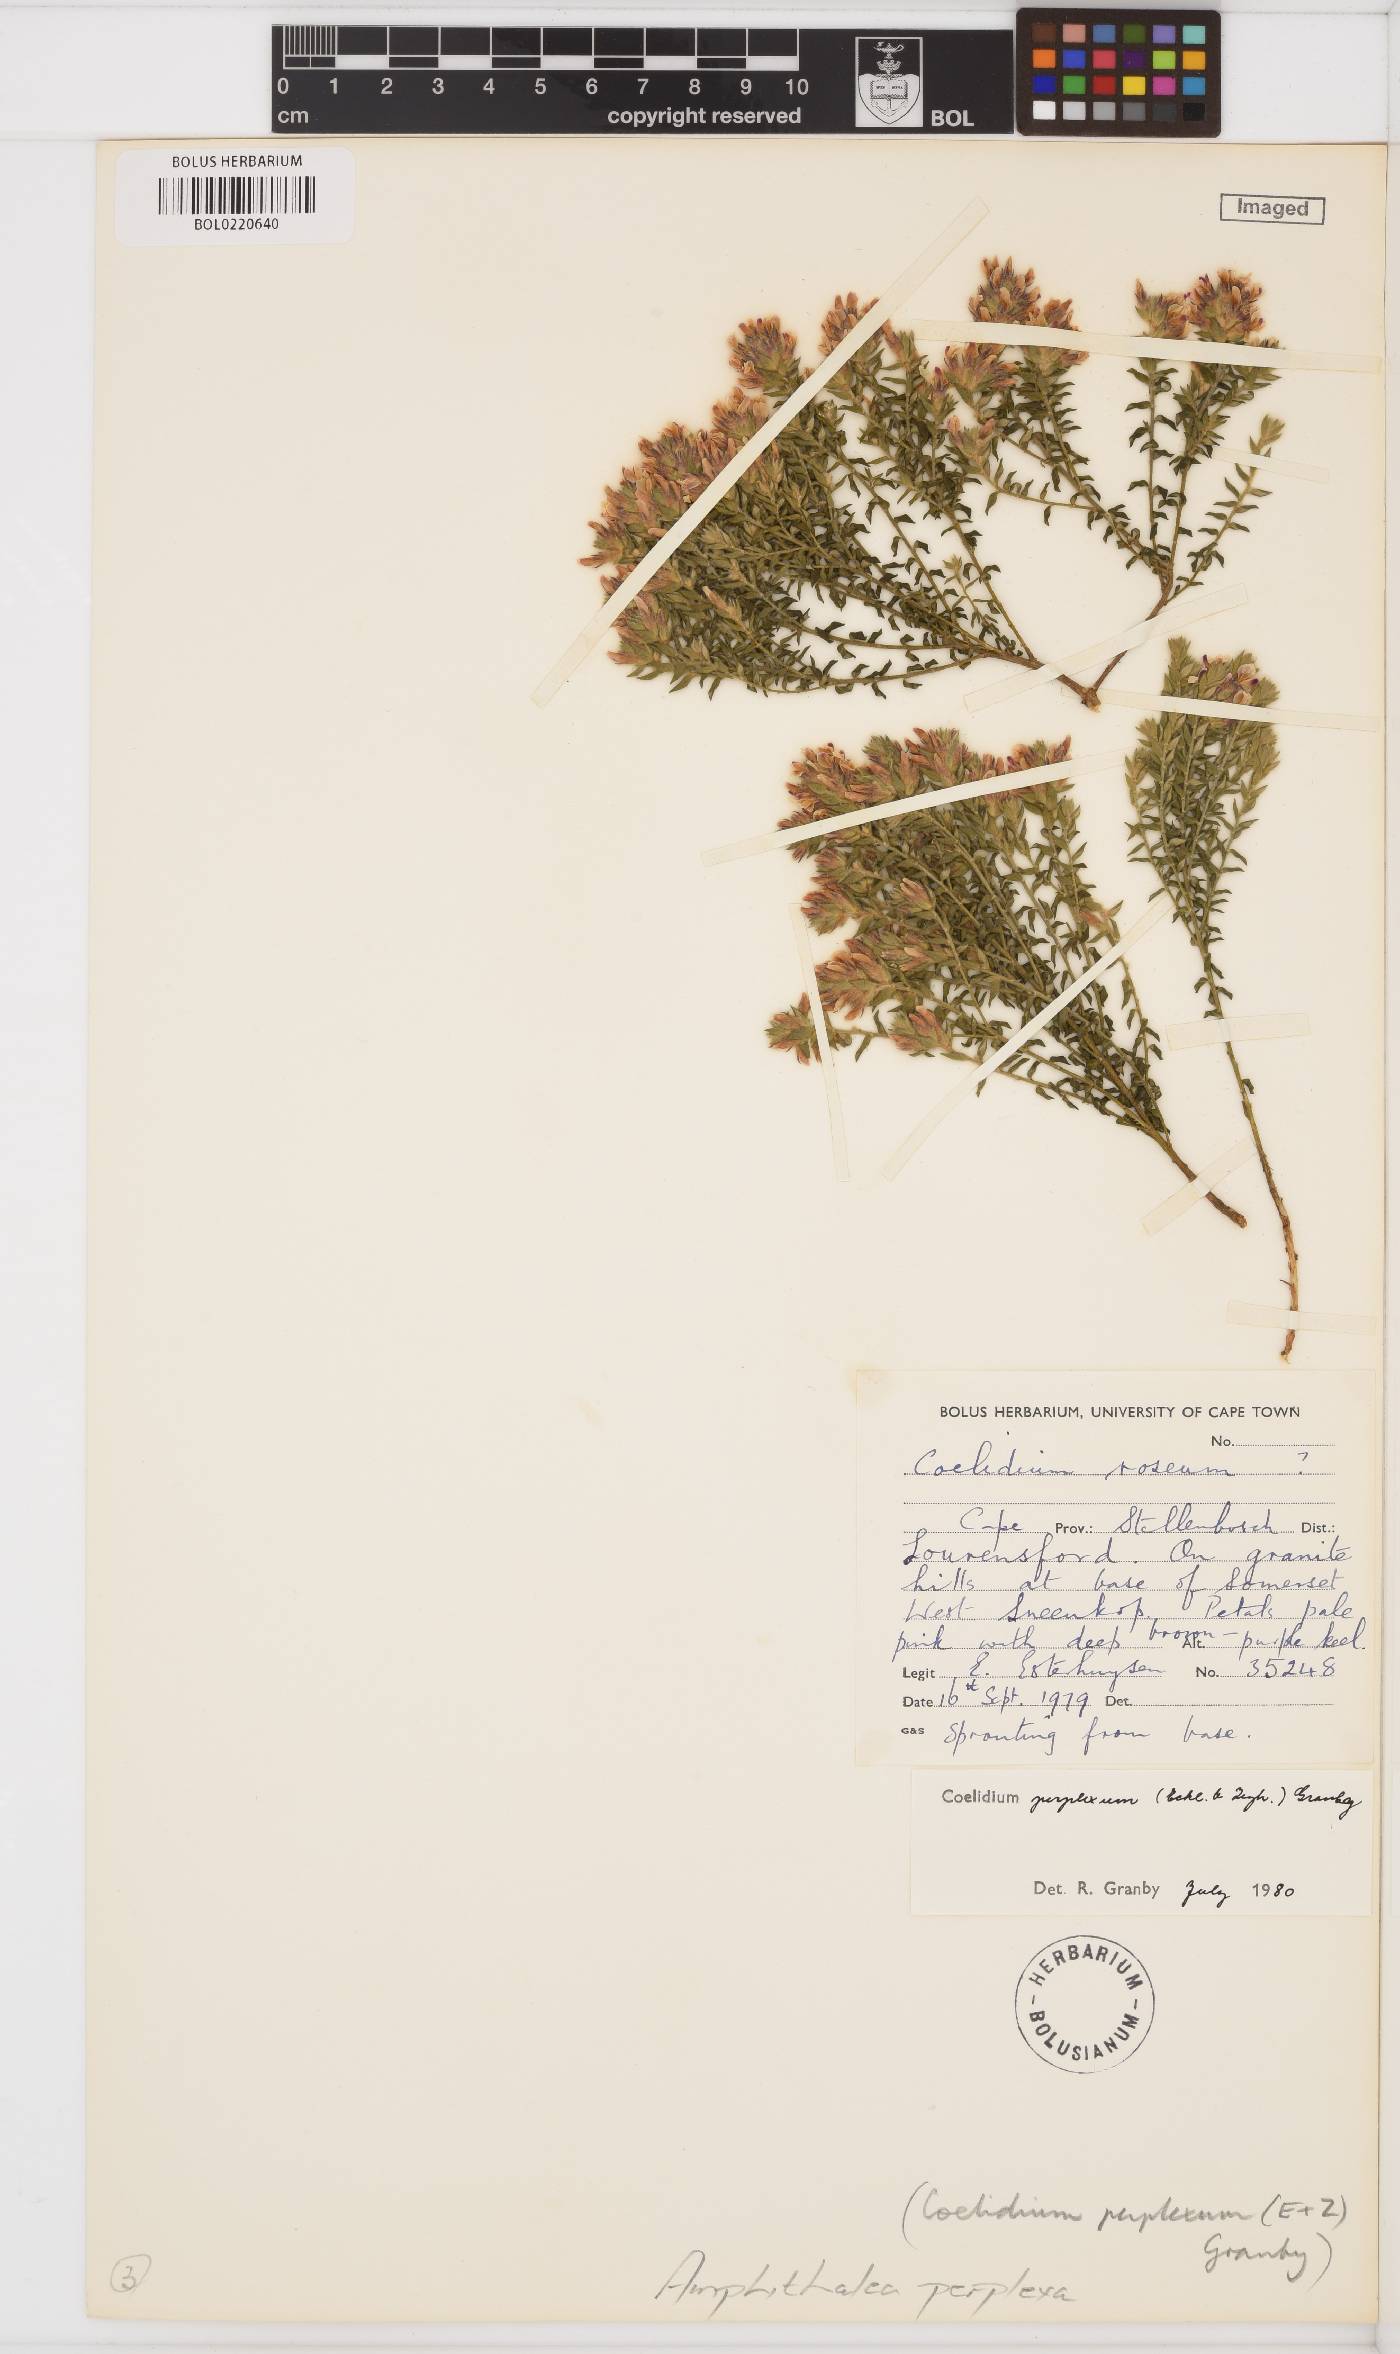 0 1 2 3 4 5 6 7 8 9 10
cm
copyright reserved
BOL
BOLUS HERBARIUM
BOL0220640
Imaged
BOLUS HERBARIUM, UNIVERSITY OF CAPE TOWN
No.
Coelidium roseum ?
Cape Prov.: Stellenbosch Dist.:
Lourensford. On granite
hills at base of Somerset
West Sneeukop. Petals pale
pink with deep brown- Alt. purple keel.
Legit E. Esterhuysen No. 35248
Date 16 Sept. 1979 Det.
G&S Sprouting from base.
Coelidium perplexum (Eckl. & Zeyh.) Granby
Det. R. Granby July 1980
HERBARIUM
BOLUSIANUM
(Coelidium perplexum (E+Z)
Granby)
Amphithalea perplexa
3